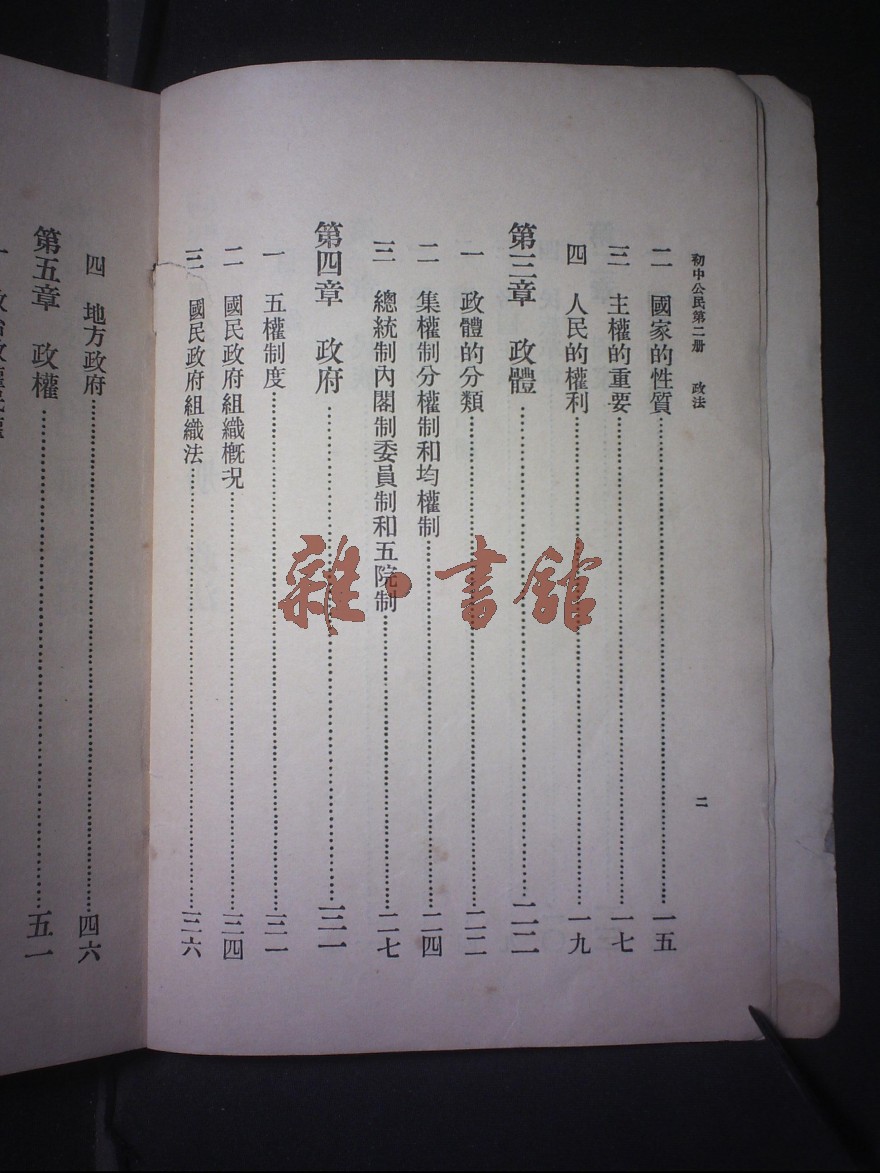 初中公民第二册 政法
二
二 國家的性質……一五
三 主權的重要……一七
四 人民的權利……一九
第三章 政體……二二
一 政體的分類……二二
二 集權制分權制和均權制……二四
三 總統制內閣制委員制和五院制……二七
第四章 政府……三一
一 五權制度……三一
二 國民政府組織概況……三四
三 國民政府組織法……三六
四 地方政府……四六
第五章 政權……五一
雜·書館